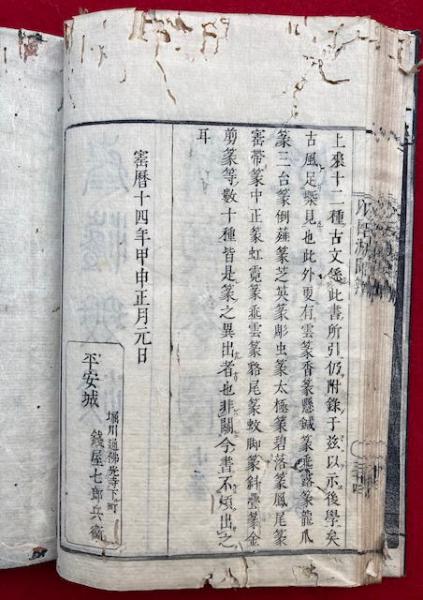 上來十二種古文係此書所引仍附錄于茲以示後學矣
古風足槩見也此外更有雲篆香篆懸鍼篆垂露篆龍爪
篆三台篆倒薤篆芝英篆彫虫篆太極篆碧落篆鳳尾篆
帶篆中正篆虹霓篆垂雲篆尾篆蚊脚篆斜疊篆金
剪篆等數十種皆是篆之異出者也非關今書不煩出之
耳
寳曆十四年甲申正月元日
堀川通佛光寺下町
平安城
錢屋七郎兵衞